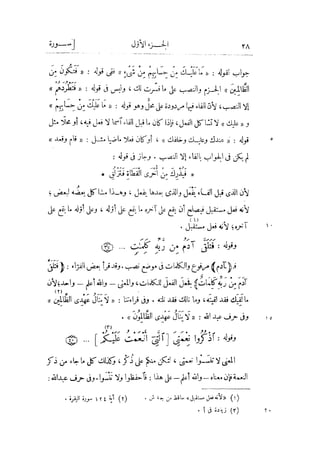 ٢٨ الجزء الأول [سورة
جواب لقوله : « ما عليك من حسابهم من شيء » ففى قوله : « فتكون من
الظالمين » الجزم والنصب على ما فسرت لك ، وليس فى قوله : « فتطردهم »
إلا النصب، لأن الفاء فيها مردودة على محل وهو قوله : « ما عليك من حسابهم »
و « عليك » لا تشاكل الفعل، فإذا كان ما قبل الفاء اسما لا فعل فيه، أو محلا مثل
٥ قوله : « عندك وعليك وخلفك » ، أو كان فعلا ماضيا مثل : « قام وقعد »
لم يكن فى الجواب بالفاء إلا النصب . وجاز فى قوله :
* فيذرك من أخرى القطاة فتزلق *
لأن الذى قبل الفاء يفعل والذى بعدها يفعل ، وهذا مشاكل بعضه لبعض ؛
لأنه فعل مستقبل فيصلح أن يقع على آخره ما يقع على أوله ، وعلى أوله ما يقع على
١٠ آخره؛ لأنه فعل مستقبل (١).
وقوله : فتلقى آدم من ربه كلمات ... (٣٧)
فـ (آدم) مرفوع والكلمات فى موضع نصب . وقد قرأ بعض القراء : (فتلقى
آدم من ربه كلمات) فجعل الفعل للكلمات، والمعنى - والله أعلم - واحد؛ لأن
ما لقيك فقد لقيته، وما نالك فقد نلته . وفى قراءتنا : « لا ينال عهدى الظالمين » (٢)
١٥ وفى حرف عبد الله : « لا ينال عهدى الظالمون » .
وقوله : اذكروا نعمتى [التى أنعمت عليكم] (٣) ... (٤٠)
المعنى لا تنسوا نعمتى ، لتكن منكم على ذكر ، وكذلك كل ما جاء من ذكر
النعمة فإن معناه - والله أعلم - على هذا : فاحفظوا ولا تنسوا. وفى حرف عبد الله :
(١) «لأنه فعل مستقبل» ساقط من ج، ش . (٢) آية ١٢٤ سورة البقرة .
٢٠ (٣) زيادة فى أ .